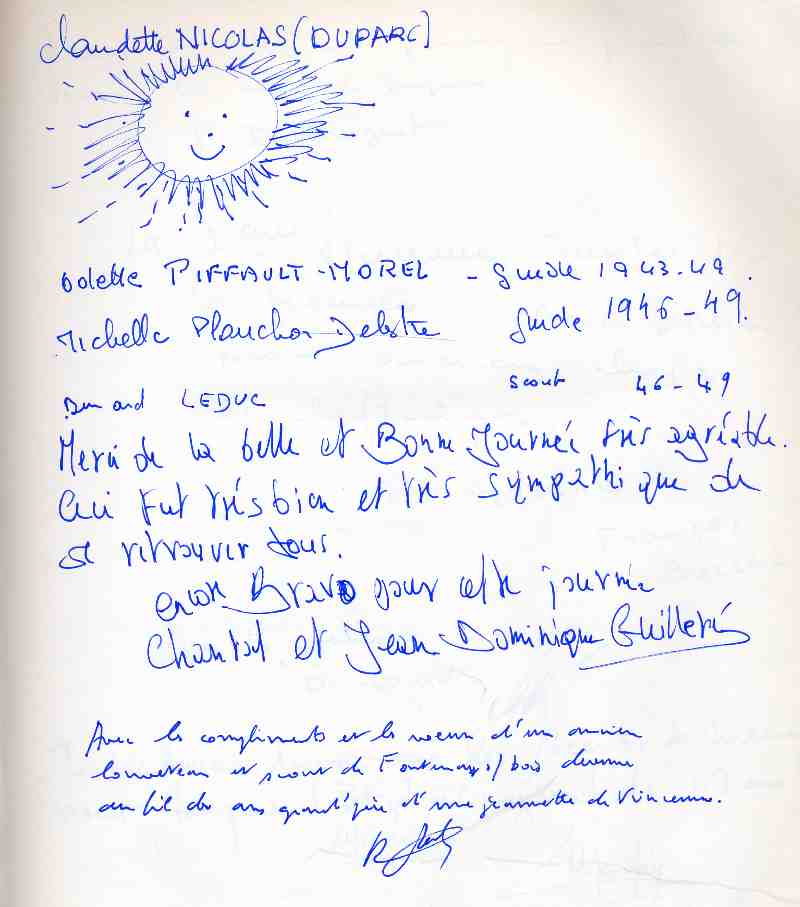 Claudette NICOLAS (DUPARC)
Odette PIFFAULT-MOREL - guide 1943-49.
Michelle guide 1946-49.
Bernard LEDUC scout 46-49
Merci de la belle et Bonne Journée très agréable.
Ceci fut très bien et très sympathique de
se retrouver tous.
encore Bravo pour cette journée
Chantal et Jean Dominique
Avec les compliments et les voeux d'un ancien
louveteau et scout de Fontenay s/bois devenu
au fil des ans grand'père d'une jeannette de Vincennes.